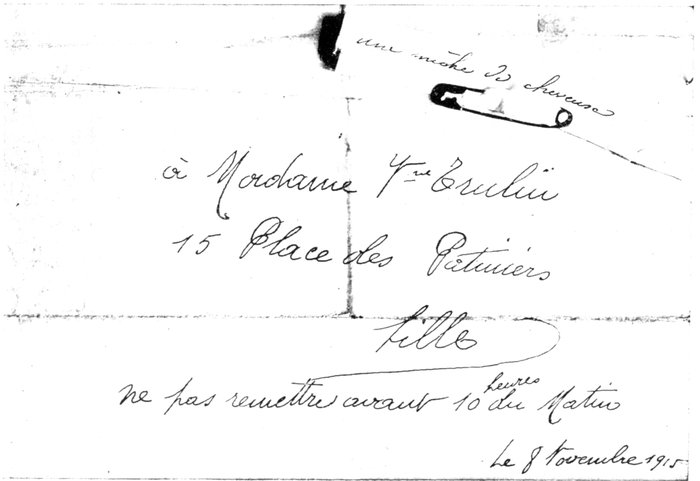 une mêche de cheveux
à Madame Vve Trulin
15 Place des Patiniers
Lille
ne pas remettre avant 10 heures du Matin
Le 8 Novembre 1915